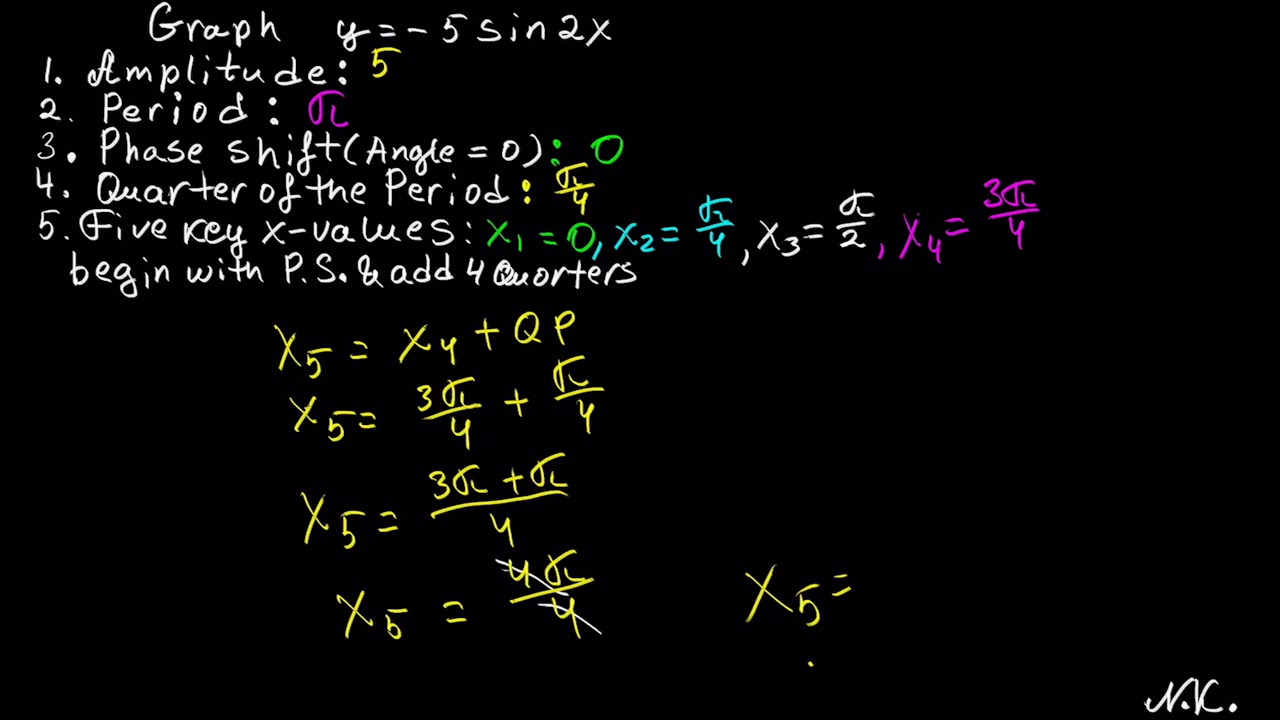 Graph y = - 5 sin 2x
1. Amplitude: 5
2. Period: π
3. Phase shift (Angle = 0): 0
4. Quarter of the Period: π/4
5. Five key x-values: x₁ = 0, x₂ = π/4, x₃ = π/2, x₄ = 3π/4
begin with P.S. & add 4 Quorters
x₅ = x₄ + QP
x₅ = 3π/4 + π/4
x₅ = (3π + π)/4
x₅ = 4π/4
x₅ =
N.K.